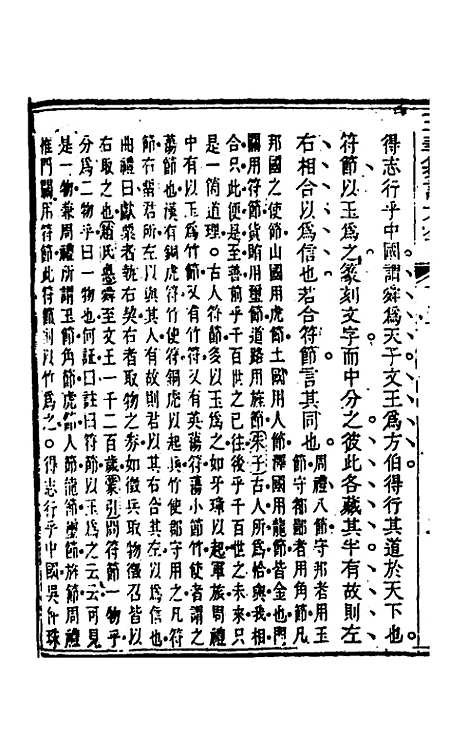 得志行乎中國謂舜爲天子文王爲方伯得行其道於天下也
符節以玉爲之篆刻文字而中分之彼此各藏其半有故則左
右相合以爲信也若合符節言其同也
周禮八節守邦者用玉
節守都鄙者用角節凡
邦國之使節山國用虎節土國用人節澤國用龍節皆金也門
關用符節貨賄用璽節道路用旌節朱子古人所爲恰與我相
合只此便是至善前乎千百世之已往後乎千百世之未來只
是一箇道理古人符節多以玉爲之如牙璋以起軍旅周禮
中有以玉爲竹節又有竹符又有英蕩符蕩小節竹使者謂之
蕩節也漢有銅虎符竹使符銅虎以起兵竹使郡守用之凡符
節右留君所左以與其人有故則君以其右合其左以爲信也
曲禮曰獻粟者執右契右者取物之券如徵兵取物徵召皆以
右取之也趙氏惪舜至文王一千二百歲纂引問符節一物乎
分爲二物乎曰一物也何証曰註曰符節以玉爲之云云可見
是一物兼周禮所謂玉節角節虎節人節龍節璽節旌節周禮
惟門關用符節此符節則以竹爲之得志行乎中國吳仲珠